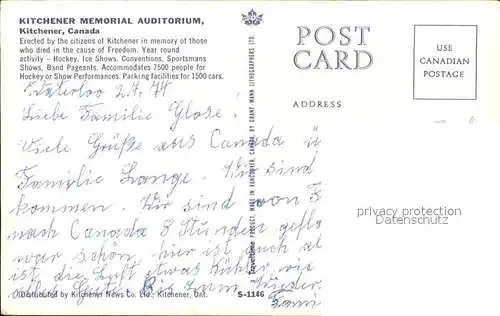 KITCHENER MEMORIAL AUDITORIUM,
Kitchener, Canada
Erected by the citizens of Kitchener in memory of those
who died in the cause of Freedom. Year round
activity — Hockey, Ice Shows, Conventions, Sportsmans
Shows, Band Pageants. Accommodates 7500 people for
Hockey or Show Performances. Parking facilities for 1500 cars.
Waterloo 2.7.74
Liebe Familie Glose.
Viele Grüße aus Canada ü
Familie Lange. Wir sind
kommen. Wir sind von F
nach Canada 8 Stunden geflo
war schön, hier ist auch al
ist die Luft etwas kühler wie
alles Gute. Bis zum Wieder
Fami
Distributed by Kitchener News Co. Ltd., Kitchener, Ont.
S-1146
PRODUCT. MADE IN VANCOUVER, CANADA, BY GRANT-MANN LITHOGRAPHERS LTD.
POST
CARD
ADDRESS
USE
CANADIAN
POSTAGE
privacy protection
Datenschutz